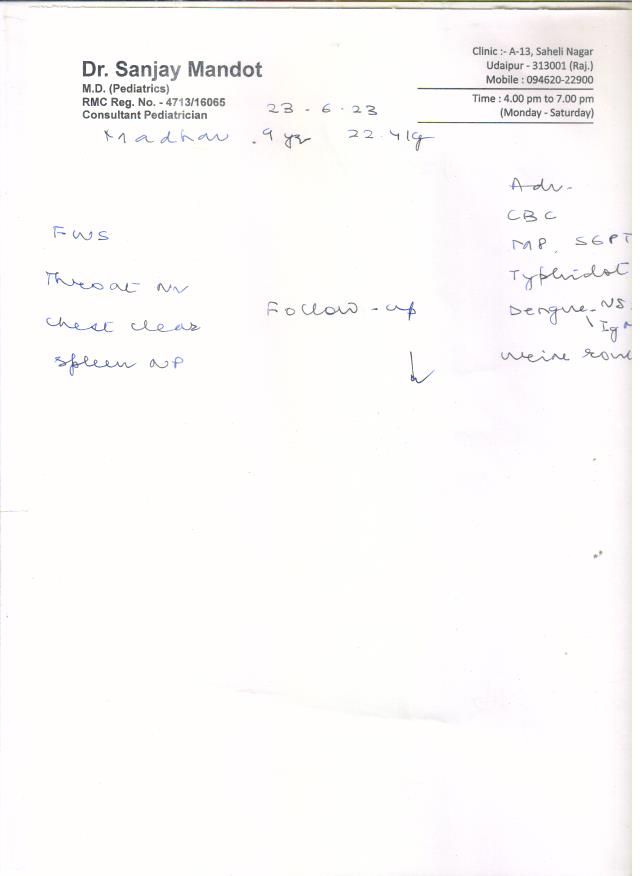 Dr. Sanjay Mandot
M.D. (Pediatrics)
RMC Reg. No. - 4713/16065
Consultant Pediatrician
Clinic :- A-13, Saheli Nagar
Udaipur - 313001 (Raj.)
Mobile : 094620-22900
Time : 4.00 pm to 7.00 pm
(Monday - Saturday)
23 - 6 - 23
Madhav . 9 yr 22.4 kg
Adv.
CBC
MP, SGPT
Typhidot
Dengue - NS
Ig
urine rout
FWS
Throat
Chest clear
Spleen NP
Follow - up